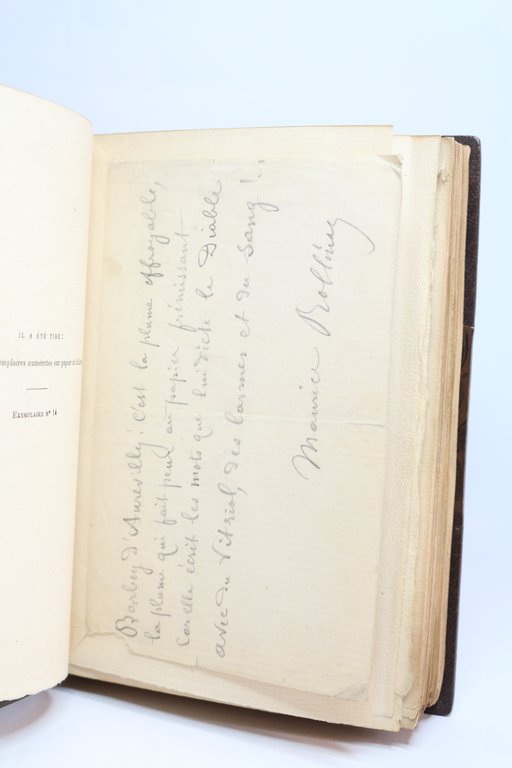 IL A ÉTÉ TIRÉ :
emplaires numérotés sur papier
EXEMPLAIRE N° 14
Barbey d'Aurevilly ! C'est la plume effroyable,
la plume qui fait peur au papier frémissant
Car elle écrit les mots que lui dicte le Diable
avec du Vitriol, des larmes et du sang !
Maurice Rollinat